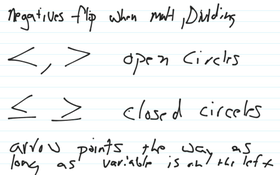 negatives flip when mult, Dividing
<, > open circles
≤ ≥ closed circeles
arrow points the way as
long as variable is on the left